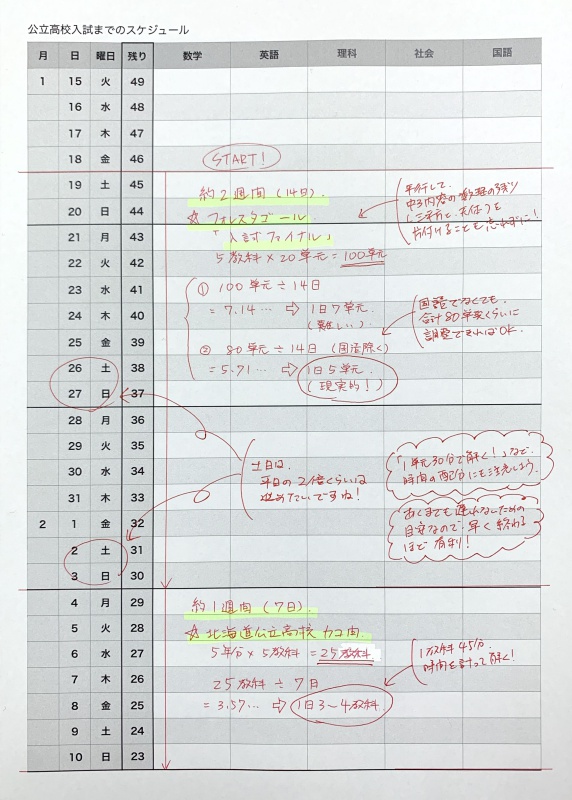 公立高校入試までのスケジュール
月 日 曜日 残り 数学 英語 理科 社会 国語
1 15 火 49
16 水 48
17 木 47
18 金 46 START!
19 土 45 約2週間(14日).
20 日 44 ☆ フォレスタゴール
21 月 43 「入試ファイナル」
22 火 42 5教科×20単元=100単元
23 水 41 ① 100単元÷14日
24 木 40 =7.14… ⇨ 1日7単元.
(難しい).
25 金 39 ② 80単元÷14日(国語除く)
26 土 38 =5.71… ⇨ 1日5単元
27 日 37 (現実的!)
平行して、
中3内容の数理の残り
(三平方と、天体)を
片付けることも忘れずに!
国語でなくても、
合計80単元くらいに
調整できればOK.
28 月 36
29 火 35
30 水 34
31 木 33
2 1 金 32
2 土 31
3 日 30
土日は、
平日の2倍くらいは
進めたいですね!
「1単元30分で解く!」など、
時間の配分にも注意しよう.
あくまでも遅れないための
目安なので、早く終わる
ほど有利!
4 月 29 約1週間(7日).
5 火 28 ☆ 北海道公立高校カコ問
6 水 27 5年分×5教科=25教科
7 木 26 25教科÷7日
8 金 25 =3.57… ⇨ 1日3〜4教科.
9 土 24
10 日 23
1教科45分.
時間を計って解く!